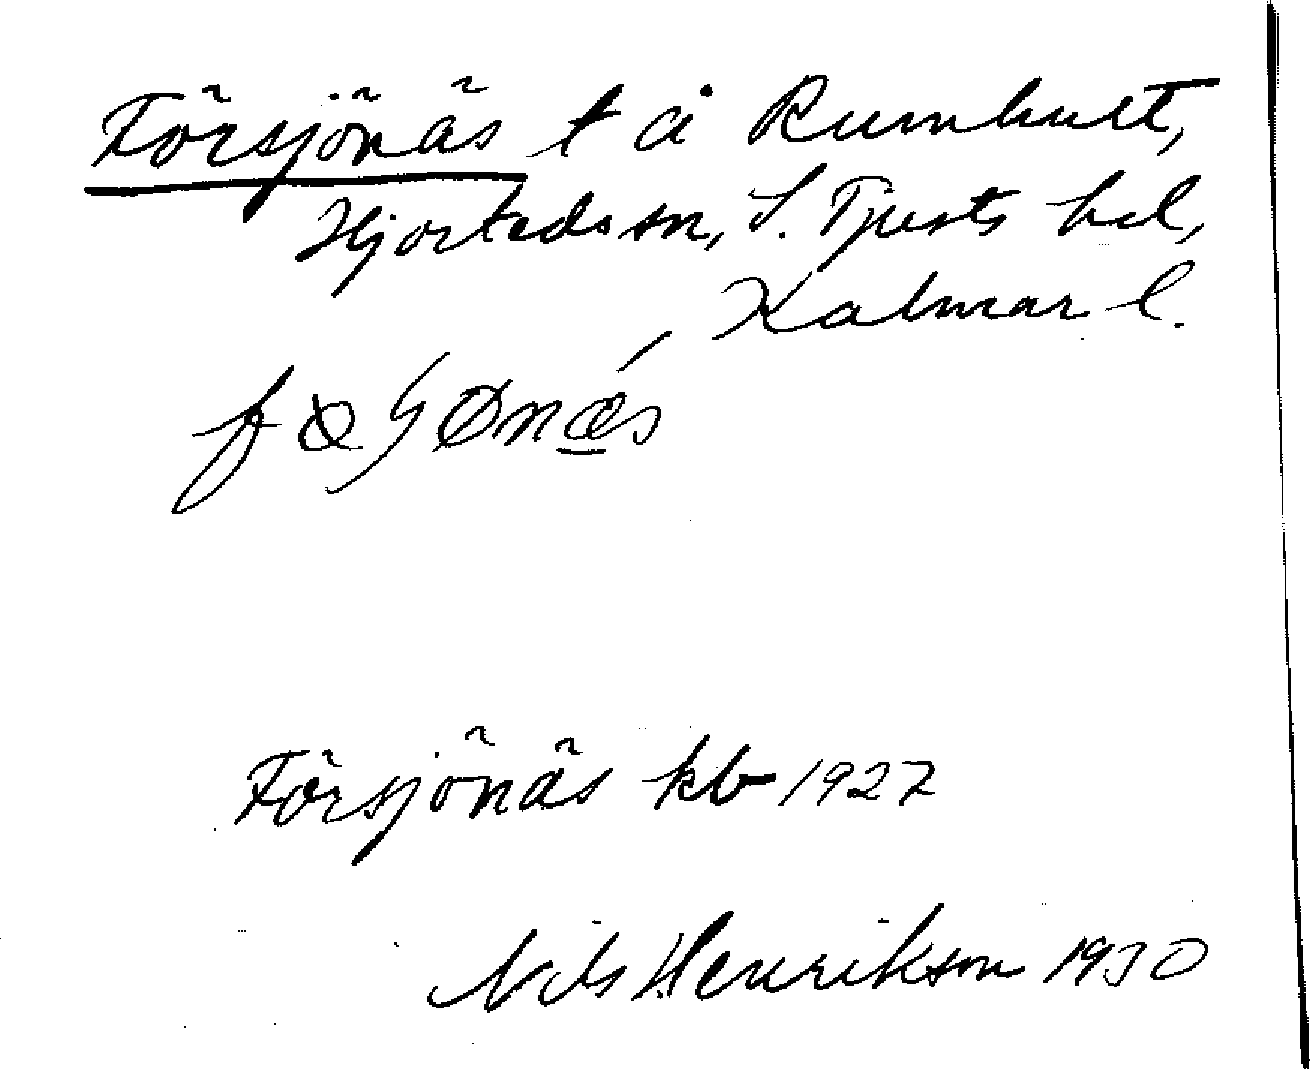 Försjönäs t å Rumhult,
Hjorteds sn, S. Tjusts hd,
Kalmar l.
Försjönäs kb 1927
Nils Henrikson 1930